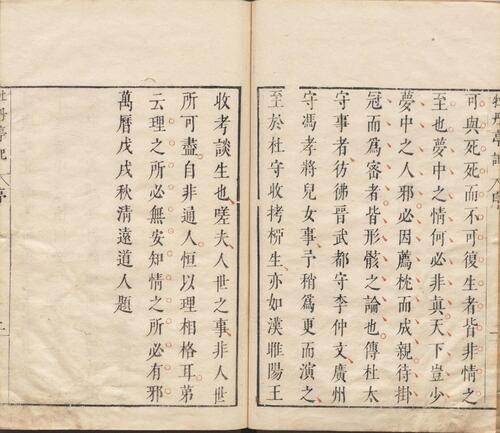 牡丹亭記 序
可與死死而不可復生者皆非情之
至也夢中之情何必非真天下豈少
夢中之人邪必因薦枕而成親待掛
冠而爲密者皆形骸之論也傳杜太
守事者彷彿晉武都守李仲文廣州
守馮孝將兒女事予稍爲更而演之
至於杜守收拷栁生亦如漢睢陽王
收考談生也嗟夫人世之事非人世
所可盡自非通人恒以理相格耳第
云理之所必無安知情之所必有邪
萬曆戊戌秋清遠道人題
牡丹亭記 序 二